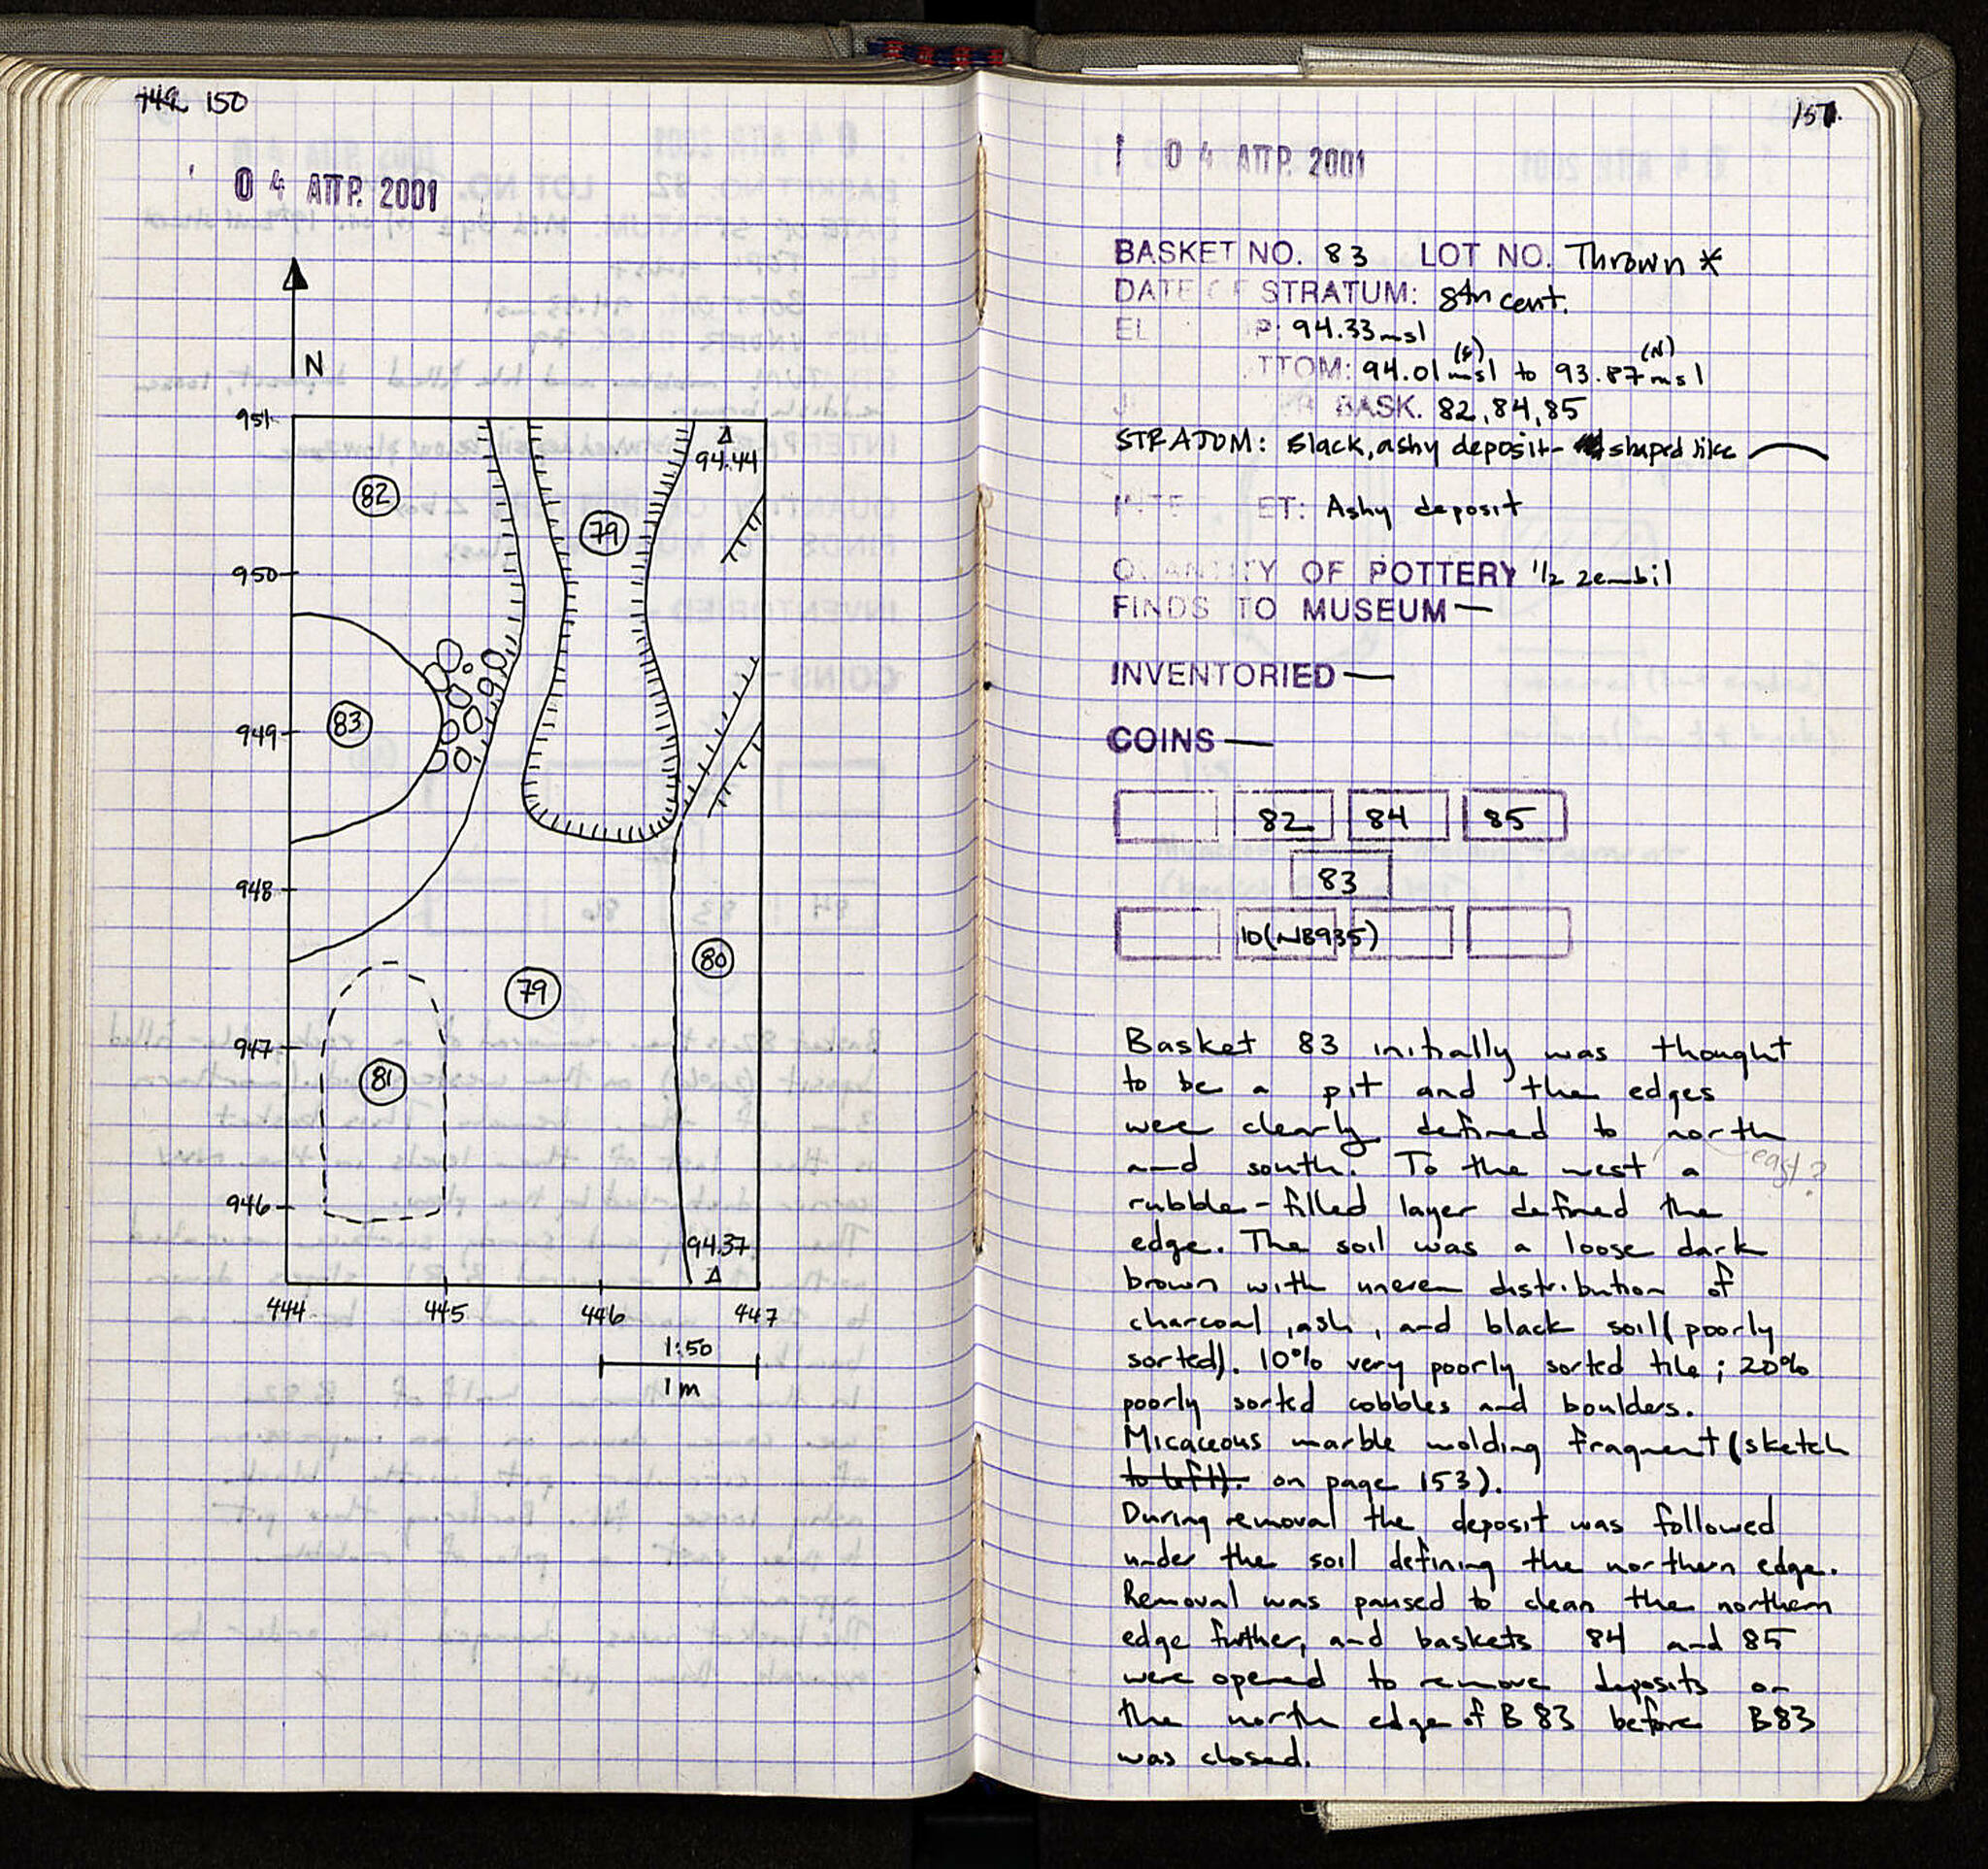 149 150
04 ΑΠΡ. 2001
N
951
94.44
82
79
950
83
949
948
80
79
947
81
946
94.37
444 445 446 447
1:50
1 m
151
04 ΑΠΡ. 2001
BASKET NO. 83 LOT NO. Thrown *
DATE OF STRATUM: 8th cent.
EL P: 94.33 msl
TTOM: 94.01 msl (S) to 93.87 msl (N)
BASK. 82, 84, 85
STRATUM: Black, ashy deposit- shaped like
INTE ET: Ashy deposit
QUANTITY OF POTTERY 1/2 zembil
FINDS TO MUSEUM —
INVENTORIED —
COINS —
82 84 85
83
10(NB935)
Basket 83 initially was thought
to be a pit and the edges
were clearly defined to north
and south. To the west a
east?
rubble-filled layer defined the
edge. The soil was a loose dark
brown with uneven distribution of
charcoal, ash, and black soil (poorly
sorted). 10% very poorly sorted tile; 20%
poorly sorted cobbles and boulders.
Micaceous marble molding fragment (sketch
to left). on page 153).
During removal the deposit was followed
under the soil defining the northern edge.
Removal was paused to clean the northern
edge further, and baskets 84 and 85
were opened to remove deposits on
the north edge of B 83 before B83
was closed.